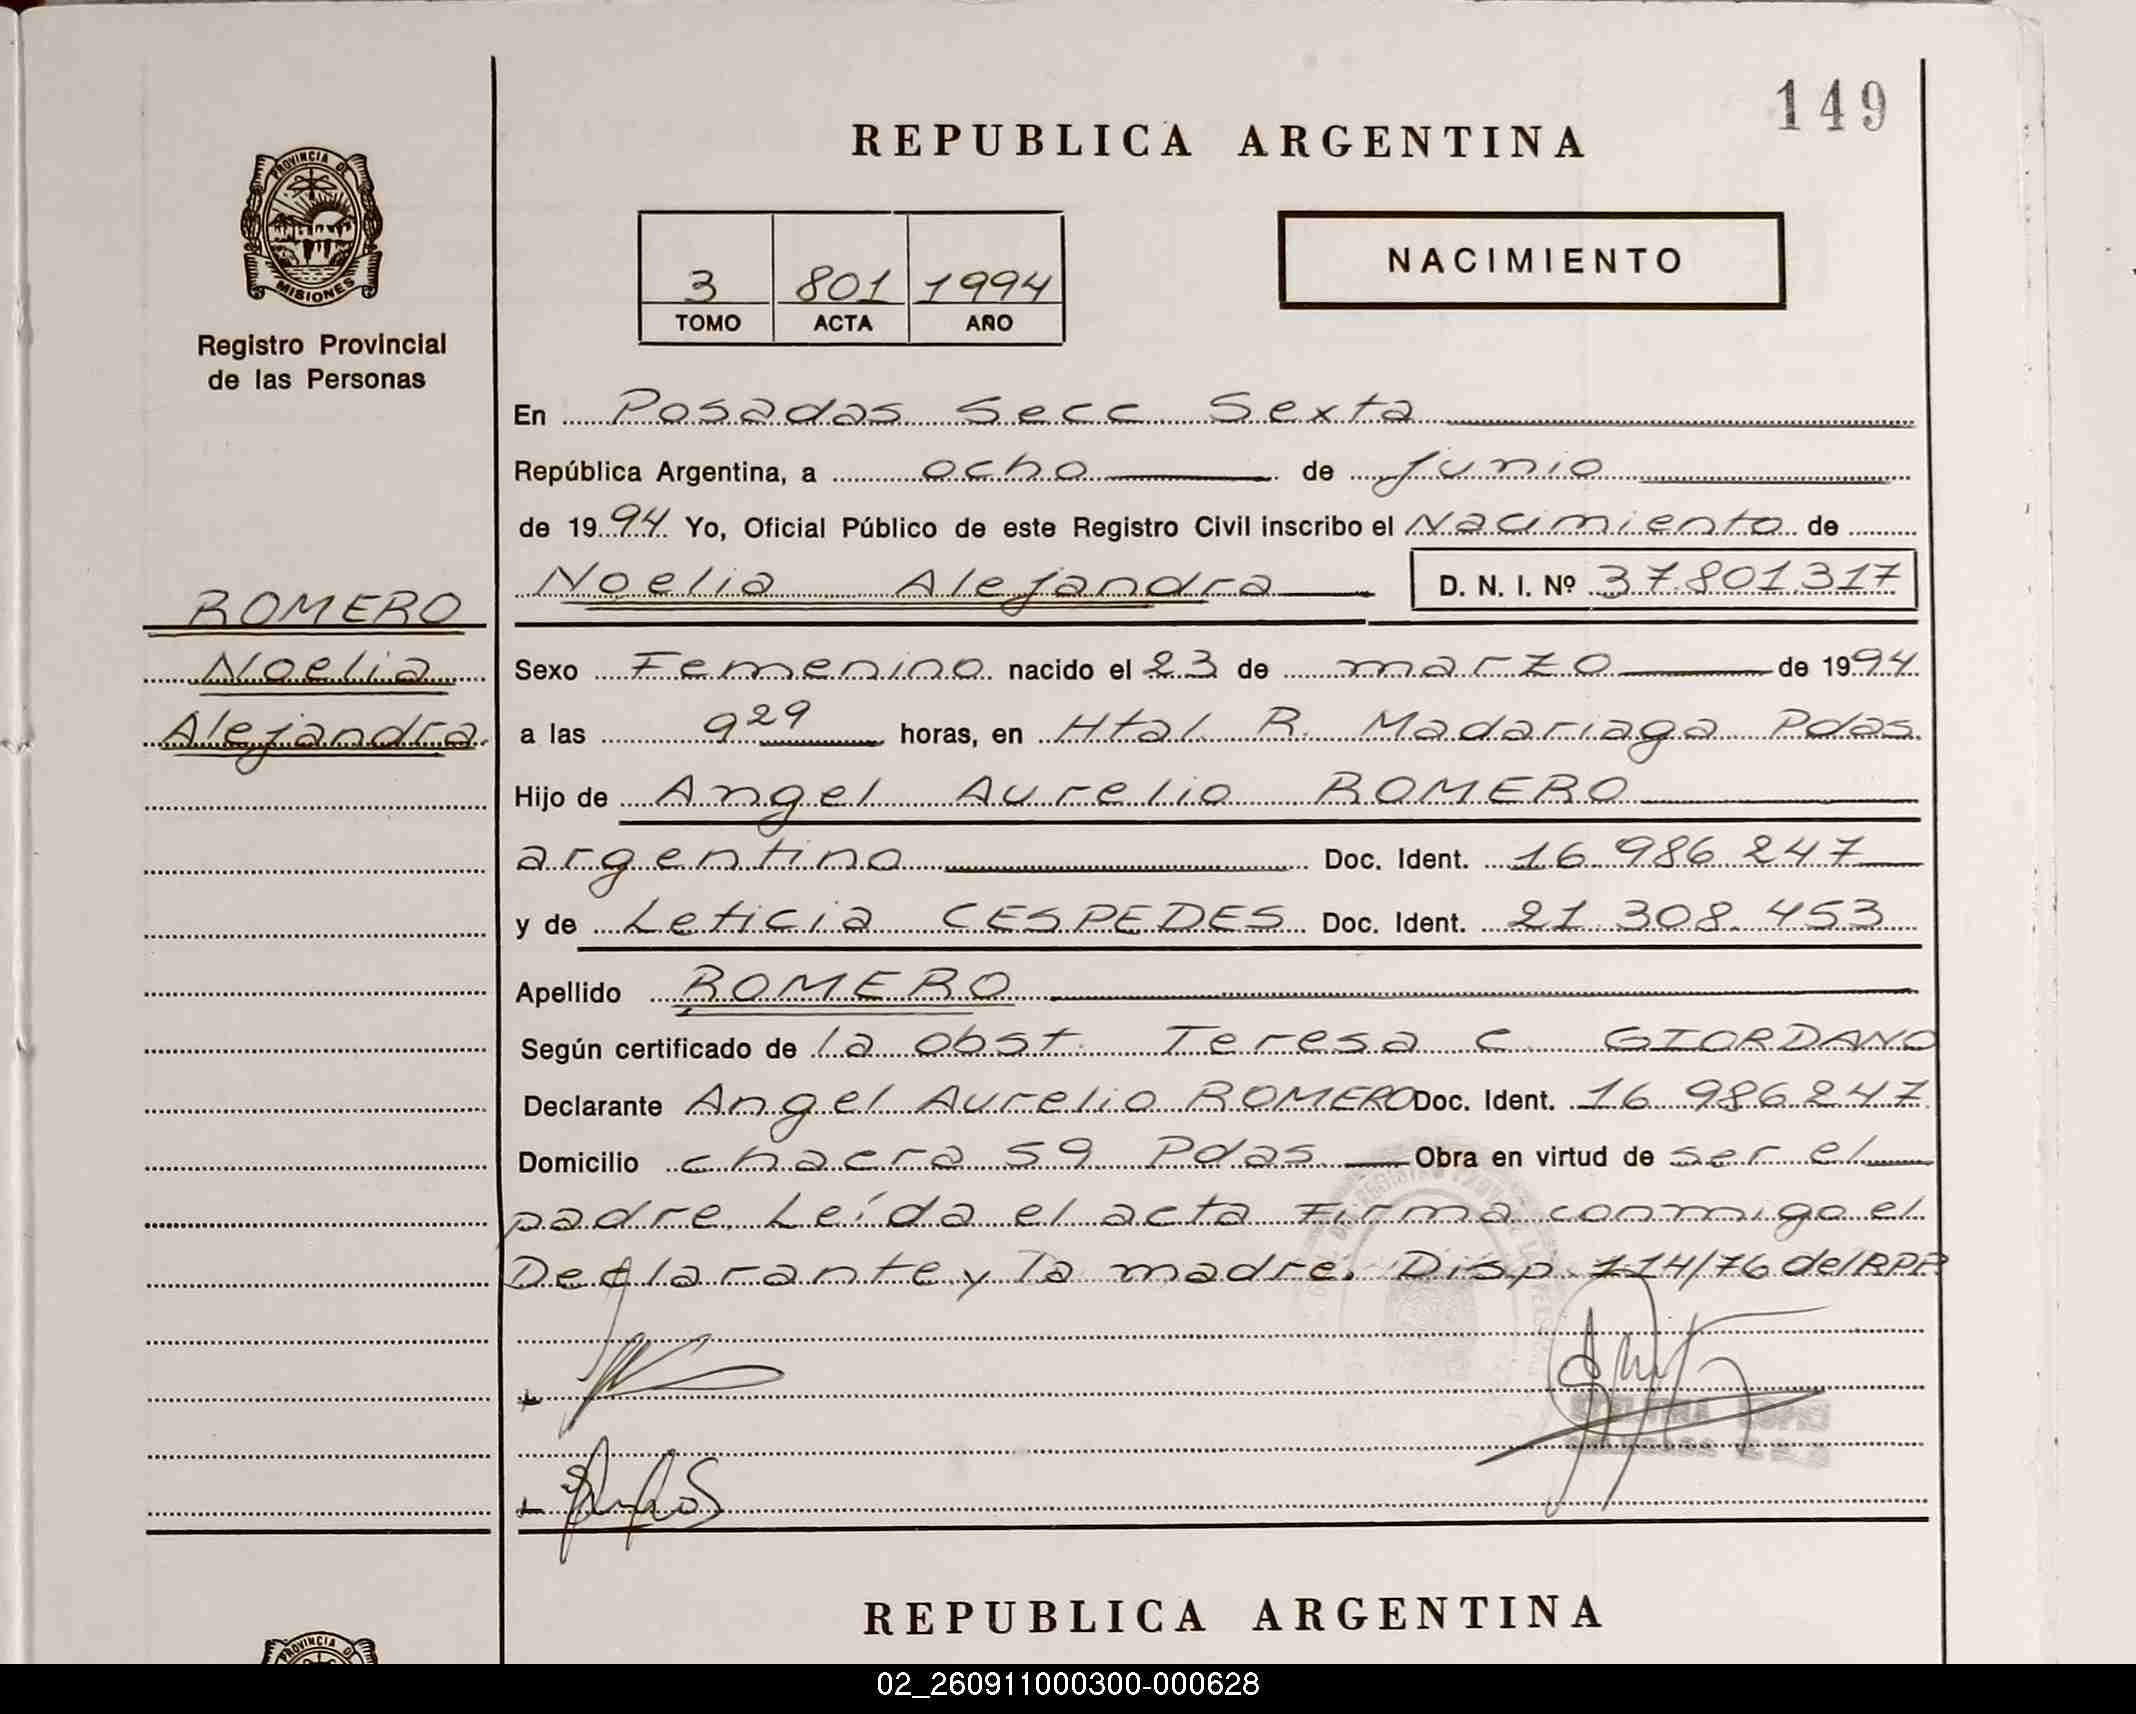 149
REPUBLICA ARGENTINA
PROVINCIA DE
MISIONES
Registro Provincial
de las Personas
3 801 1994
TOMO ACTA AÑO
NACIMIENTO
En Posadas Secc Sexta
República Argentina, a ocho de junio
de 1994 Yo, Oficial Público de este Registro Civil inscribo el Nacimiento de
Noelia Alejandra D. N. I. Nº 37.801.317
ROMERO
Noelia
Alejandra
Sexo Femenino nacido el 23 de marzo de 1994
a las 9 29 horas, en Htal R. Madariaga Pdas
Hijo de Angel Aurelio ROMERO
argentino Doc. Ident. 16 986 247
y de Leticia CESPEDES Doc. Ident. 21.308.453
Apellido ROMERO
Según certificado de la obst. Teresa C GIORDANO
Declarante Angel Aurelio ROMERO Doc. Ident. 16 986 247
Domicilio chacra 59 Pdas Obra en virtud de ser el
padre. Leída el acta Firma conmigo el
Declarante y la madre. Disp 114/76 del RPP
REPUBLICA ARGENTINA
PROVINCIA DE
02_260911000300-000628